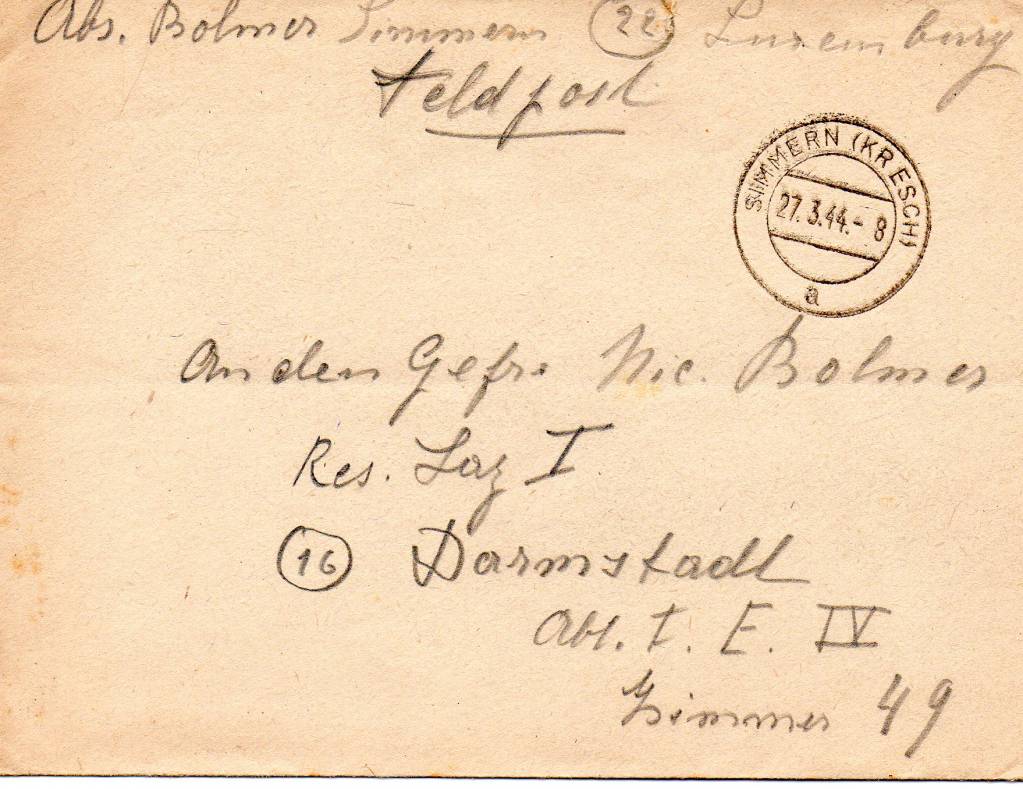 Abs. Bolmer Simmern (22) Luxemburg
Feldpost
SIMMERN (KR ESCH)
27.3.44.- 8
a
An den Gefr. Nic. Bolmer
Res. Laz I
(16) Darmstadt
Abt. I. E. IV
Zimmer 49